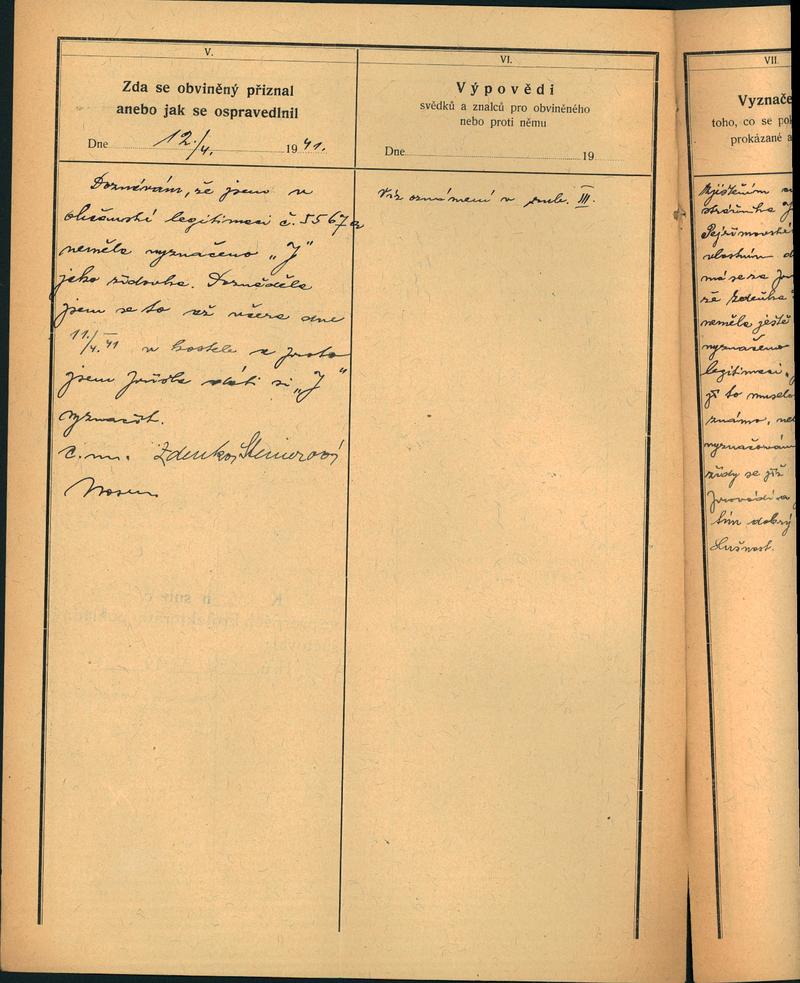 V.
Zda se obviněný přiznal
anebo jak se ospravedlnil
Dne 12./4. 1941.
Doznávám, že jsem v
občanské legitimaci č. 5567a
neměla vyznačeno „J"
jako židovka. Dozvěděla
jsem se to až včera dne
11./4. 41 v kostele a proto
jsem přišla dáti si „J"
vyznačit.
č.m. Zdenka Steinerová
VI.
Výpovědi
svědků a znalců pro obviněného
nebo proti němu
Dne 19
Viz oznámení v rub. III.
VII
Vyznače
toho, co se pok
prokázané a
Zjištěním
strážníka
vlastním d
má se za
že Zdeňka
neměla ještě
vyznačeno
legitimaci „
jí to muselo
známo, ne
vyznačován
židy se již
provádí a
tím dobrý